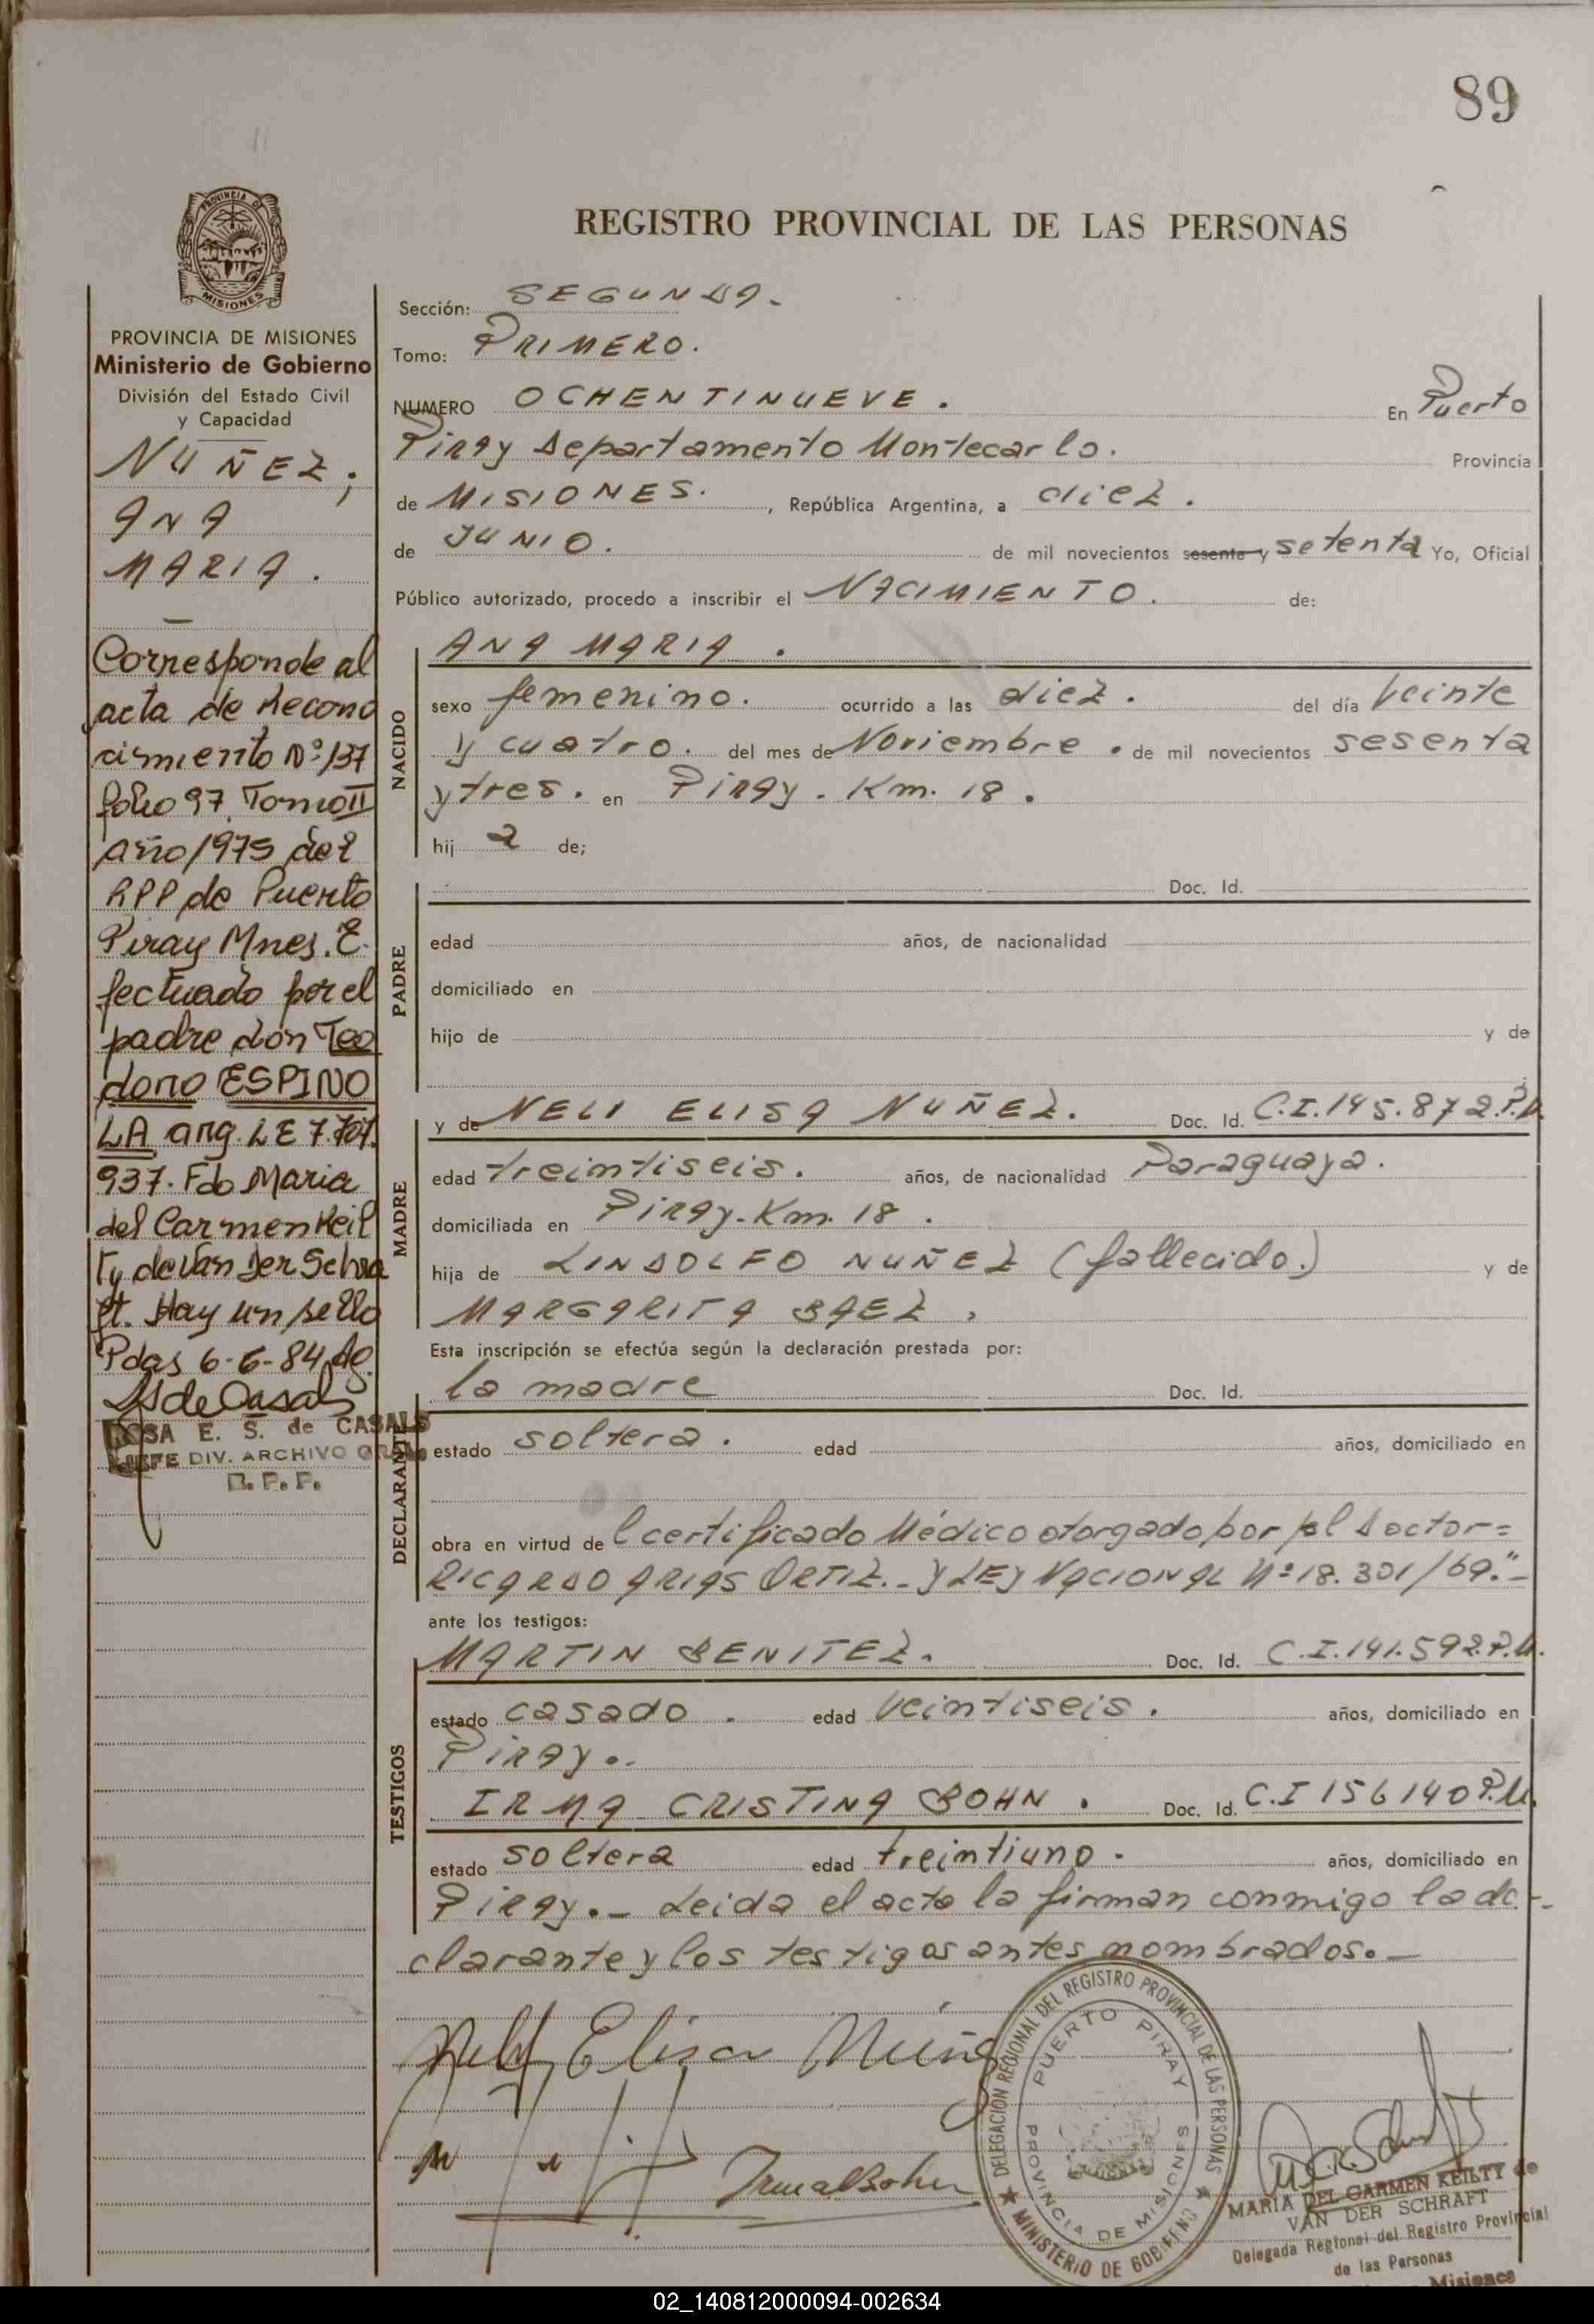 89
PROVINCIA DE
MISIONES
REGISTRO PROVINCIAL DE LAS PERSONAS
PROVINCIA DE MISIONES
Ministerio de Gobierno
División del Estado Civil
y Capacidad
NUÑEZ;
ANA
MARIA.
Corresponde al
acta de Recono
cimiento Nº 137
folio 97 Tomo II
año 1975 del
RPP de Puerto
Piray Mnes. E
fectuado por el
padre don Teo
doro ESPINO
LA arg. LE 7.707.
937. Fdo Maria
del Carmen Keil
Ty de Van Der Schra
ft. Hay un sello
Pdas 6-6-84
ROSA E. S. de CASALS
JEFE DIV. ARCHIVO GRAL
R. P. P.
Sección: SEGUNDA.
Tomo: PRIMERO.
NUMERO OCHENTINUEVE. En Puerto
Piray Departamento Montecarlo. Provincia
de MISIONES. , República Argentina, a diez.
de JUNIO. de mil novecientos sesenta y setenta Yo, Oficial
Público autorizado, procedo a inscribir el NACIMIENTO. de:
NACIDO
ANA MARIA.
sexo femenino. ocurrido a las diez. del día veinte
y cuatro. del mes de Noviembre. de mil novecientos sesenta
y tres. en Piray. Km. 18.
hij a de;
PADRE
Doc. Id.
edad años, de nacionalidad
domiciliado en
hijo de y de
MADRE
y de NELI ELISA NUÑEZ. Doc. Id. C.I.145.872.P.M.
edad treintiseis. años, de nacionalidad Paraguaya.
domiciliada en Piray-Km. 18.
hija de LINDOLFO NUÑEZ (fallecido.) y de
MARGARITA BAEZ,
Esta inscripción se efectúa según la declaración prestada por:
DECLARANTE
la madre Doc. Id.
estado soltera. edad años, domiciliado en
obra en virtud de l certificado Médico otorgado por el Doctor=
RICARDO ARIAS ORTIZ.- Y LEY NACIONAL Nº 18.301/69."-
ante los testigos:
TESTIGOS
MARTIN BENITEZ. Doc. Id. C.I.141.592.P.M.
estado casado. edad veintiseis. años, domiciliado en
Piray..
IRMA CRISTINA BOHN. Doc. Id. C.I 156140 P.M.
estado soltera edad treintiuno. años, domiciliado en
Piray.- Leida el acta la firman conmigo la de-
clarante y los testigos antes nombrados.-
Nelly Elisa Núñez
Irma Bohn
DELEGACIÓN REGIONAL DEL REGISTRO PROVINCIAL DE LAS PERSONAS
MINISTERIO DE GOBIERNO
PUERTO PIRAY
PROVINCIA DE MISIONES
MARIA DEL CARMEN KEILTY de
VAN DER SCHRAFT
Delegada Regional del Registro Provincial
de las Personas
Misiones
02_140812000094-002634